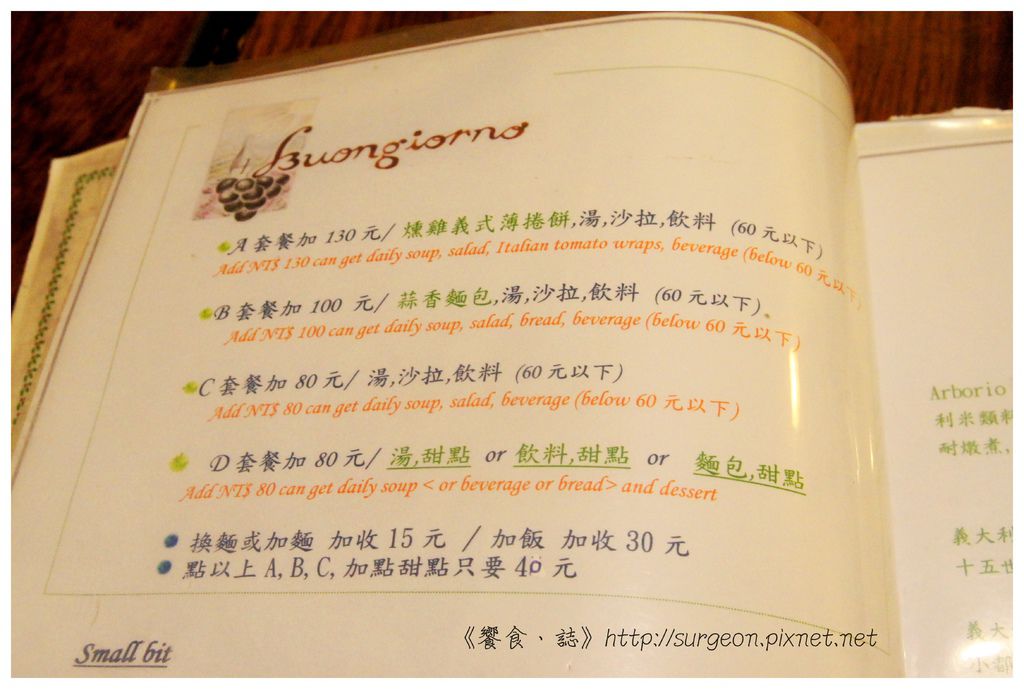 Buongiorno
A 套餐加 130 元/ 燻雞義式薄捲餅,湯,沙拉,飲料 (60 元以下)
Add NT$ 130 can get daily soup, salad, Italian tomato wraps, beverage (below 60 元以下)
B 套餐加 100 元/ 蒜香麵包,湯,沙拉,飲料 (60 元以下)
Add NT$ 100 can get daily soup, salad, bread, beverage (below 60 元以下)
C 套餐加 80 元/ 湯,沙拉,飲料 (60 元以下)
Add NT$ 80 can get daily soup, salad, beverage (below 60 元以下)
D 套餐加 80 元/ 湯,甜點 or 飲料,甜點 or 麵包,甜點
Add NT$ 80 can get daily soup < or beverage or bread> and dessert
換麵或加麵 加收 15 元 / 加飯 加收 30 元
點以上 A, B, C, 加點甜點只要 40 元
Small bit
Arborio
利米類料
耐燉煮,
義大利
十五世
義大
小都
《饗食、誌》http://surgeon.pixnet.net